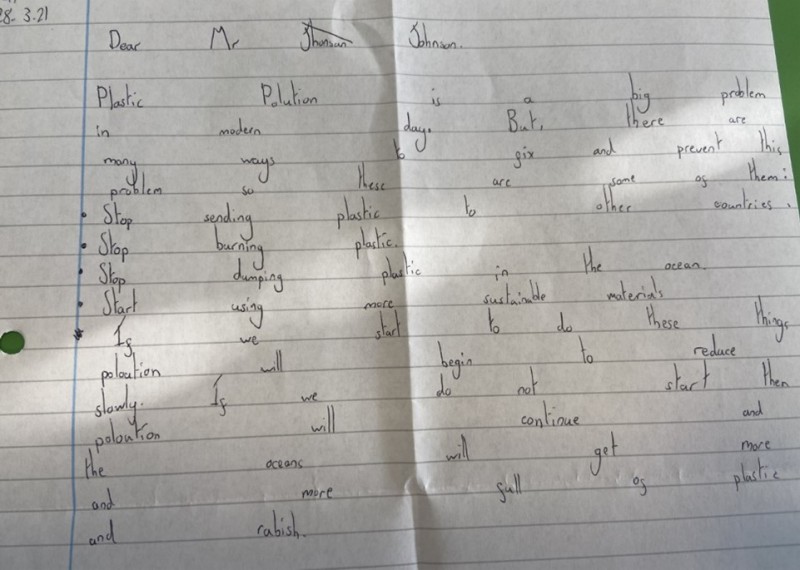 28. 3.21
Dear Mr Jhonson Johnson.
Plastic Polution is a big problem
in modern day. But, there are
many ways to fix and prevent this
problem so these are some of them:
• Stop sending plastic to other countries.
• Stop burning plastic.
• Stop dumping plastic in the ocean.
• Start using more sustainable materials
* If we start to do these things
poloution will begin to reduce
slowly. If we do not start then
poloution will continue and
the oceans will get more
and more full of plastic
and rabish.